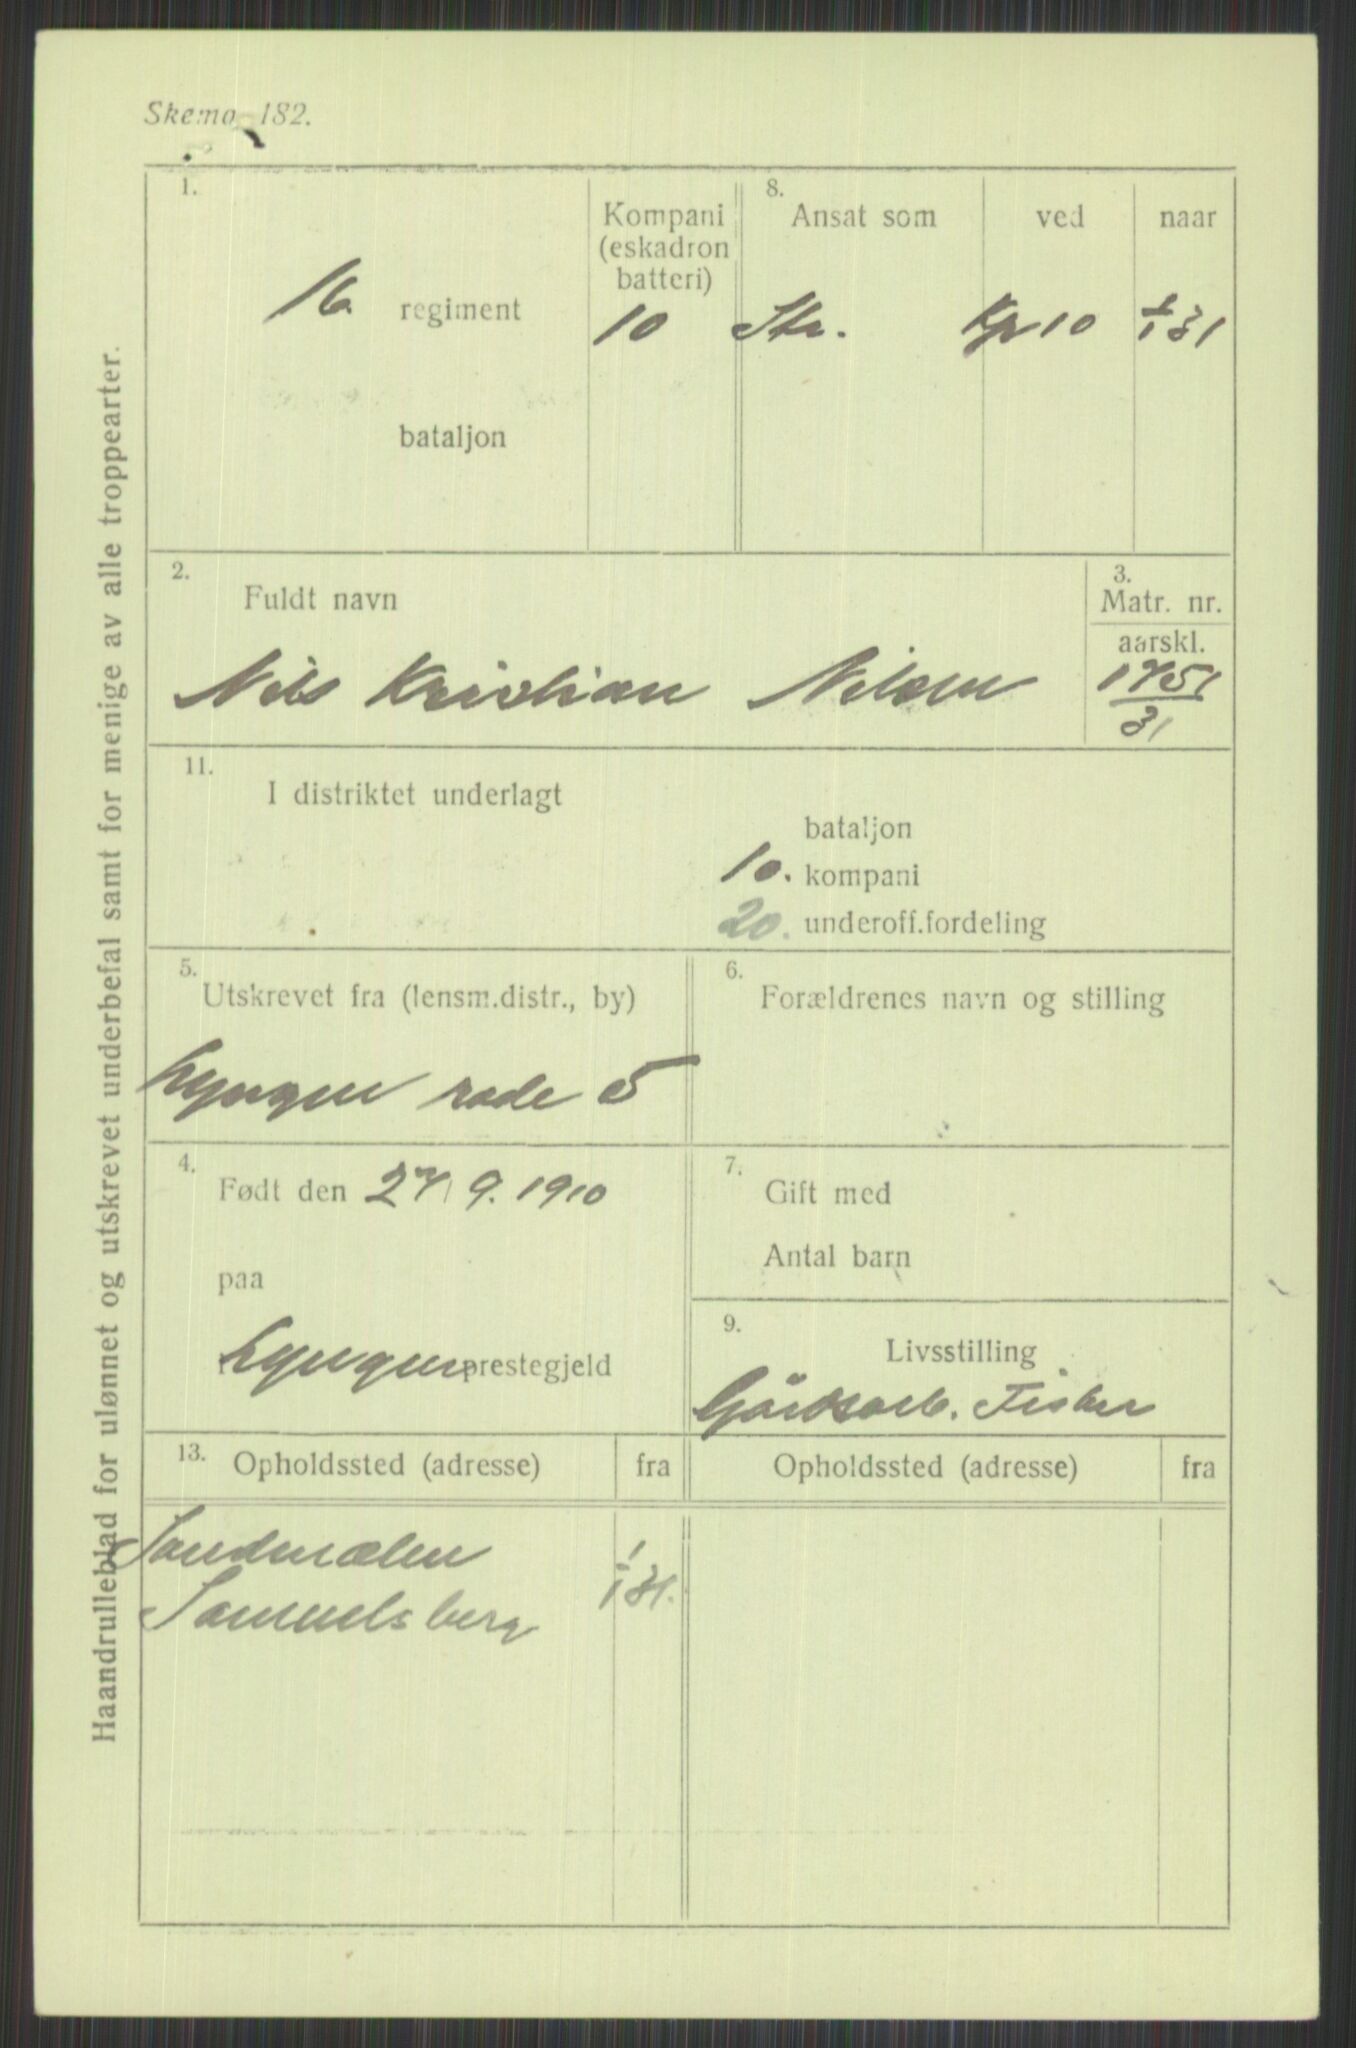 Skema 182.
Haandrulleblad for ulønnet og utskrevet underbefal samt for menige av alle troppearter.
1.
16. regiment
bataljon
Kompani
(eskadron
batteri)
10
8.
Ansat som ved naar
Str. Kp 10 1/1 31
2.
Fuldt navn
Nils Kristian Nilsen
3.
Matr. nr.
aarskl.
1751
31
11.
I distriktet underlagt
bataljon
10. kompani
20. underoff.fordeling
5.
Utskrevet fra (lensm.distr., by)
Lyngen rode 5
6.
Forældrenes navn og stilling
4.
Født den 27/9. 1910
paa
Lyngen prestegjeld
7.
Gift med
Antal barn
9.
Livsstilling
Gårdsarb. Fisker
13. Opholdssted (adresse) fra Opholdssted (adresse) fra
Sandmælen
Samuelsberg 1/1 31.